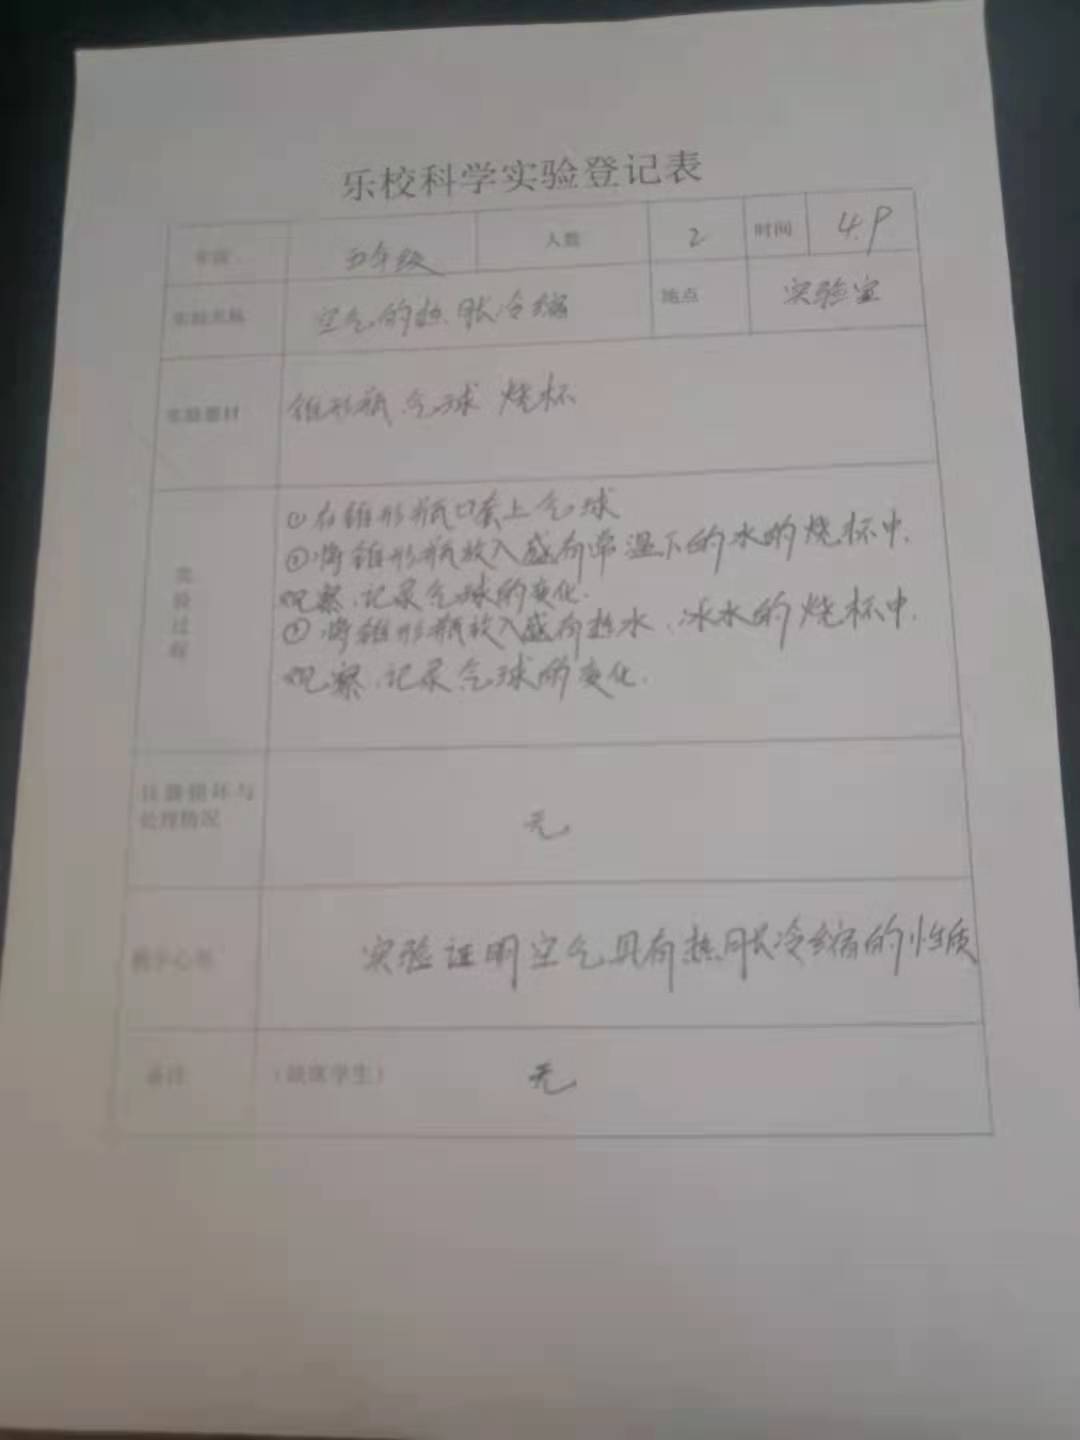 乐校科学实验登记表
年级 五年级 人数 2 时间 4.9
实验名称 空气的热胀冷缩 地点 实验室
实验器材 锥形瓶 气球 烧杯
实验过程
①在锥形瓶口套上气球
②将锥形瓶放入盛有常温下的水的烧杯中,
观察、记录气球的变化.
③将锥形瓶放入盛有热水、冰水的烧杯中.
观察、记录气球的变化.
仪器损坏与
处理情况 无
教学心得 实验证明空气具有热胀冷缩的性质
备注 (缺席学生) 无